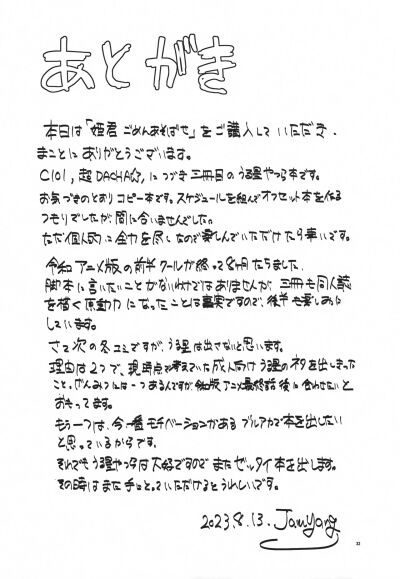 あとがき
本日は「姫君 ごめんあそばせ」をご購入していただき、
まことにありがとうございます。
C101, 超DACHA☆, につづき三冊目のうる星やつら本です。
お気づきのとおりコピー本です。スケジュールを組んでオフセット本を作る
つもりでしたが、間に合いませんでした。
ただ個人的に全力を尽くしたので楽しんでいただけたら幸いです。
令和アニメ版の前半クールが終って8ヶ月たちました。
脚本に言いたいことがないわけではありませんが、三冊も同人誌
を描く原動力になったことは事実ですので、後半も楽しみに
しています。
さて次の冬コミですが、うる星は出さないと思います。
理由は2つで、現時点で考えていた成人向けうる星のネタを出しきった
こと。げんみつには一つあるんですが、令和版アニメ最終話後に合わせたいと
おもってます。
もう一つは、今一番モチベーションがあるブルアカで本を出したい
と思っているからです。
それでもうる星やつらは大好ですのでまたゼッタイ本を出します。
その時はまた手にとっていただけるとうれしいです。
2023.8.13. JamYang
33